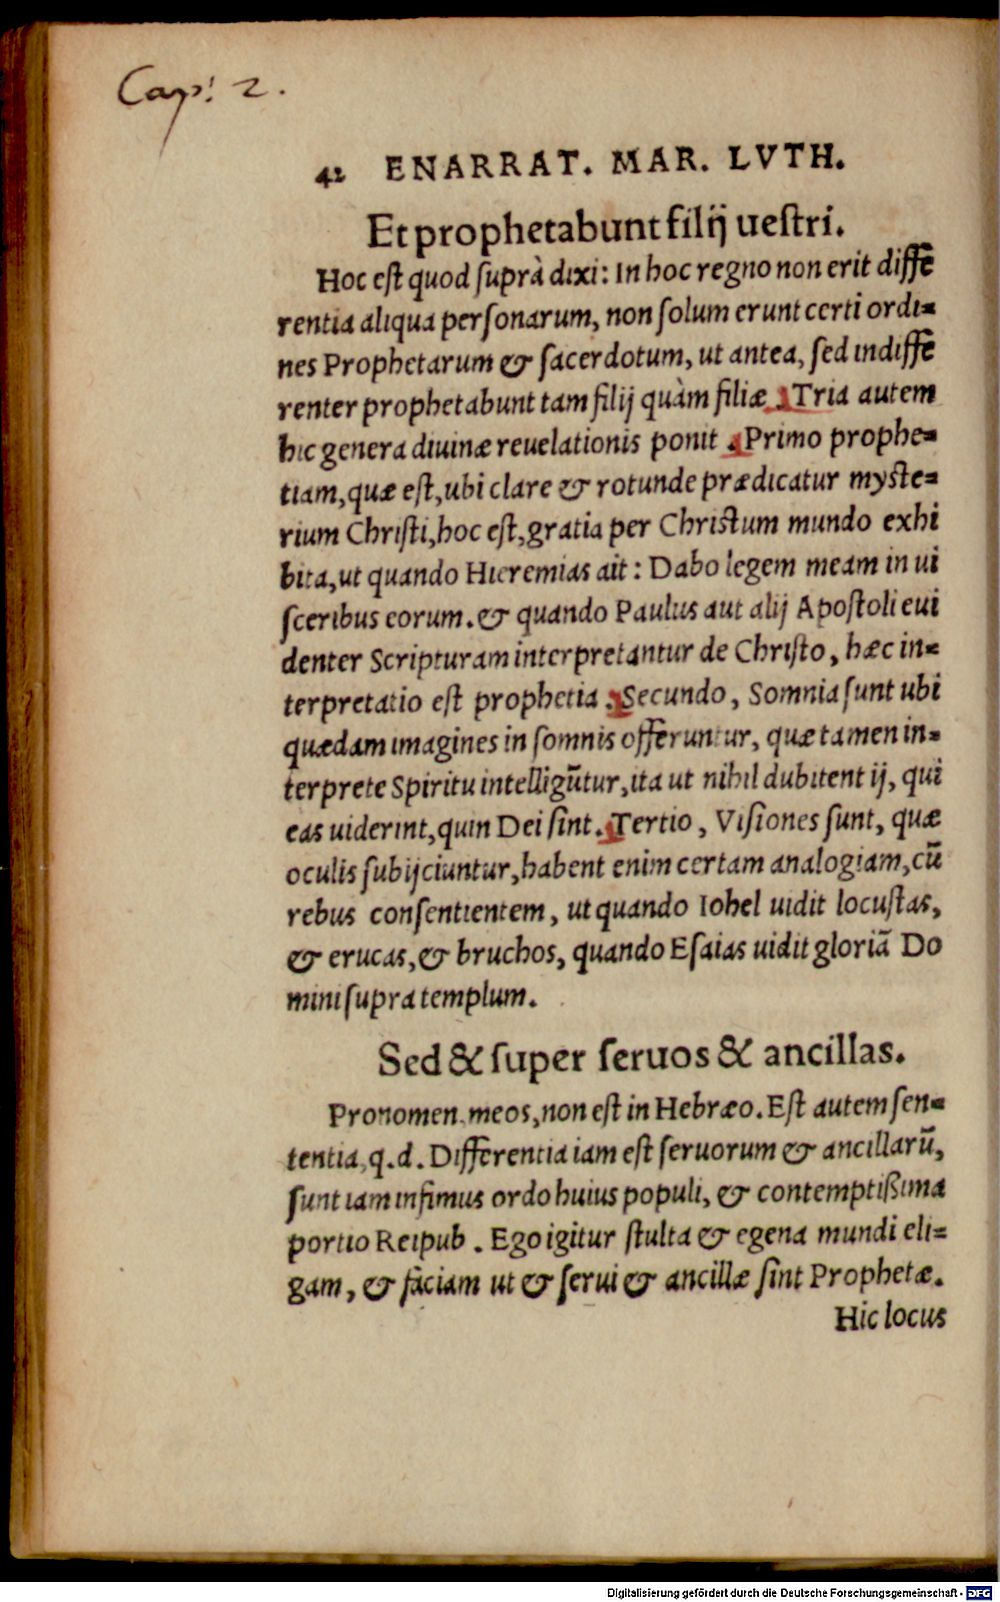 Cap: 2.
42 ENARRAT. MAR. LVTH.
Et prophetabunt filij uestri.
Hoc est quod suprà dixi: In hoc regno non erit diffe
rentia aliqua personarum, non solum erunt certi ordi=
nes Prophetarum & sacerdotum, ut antea, sed indiffe
renter prophetabunt tam filij quàm filiæ. Tria autem
hic genera diuinæ reuelationis ponit. Primo prophe=
tiam, quæ est, ubi clare & rotunde prædicatur myste=
rium Christi, hoc est, gratia per Christum mundo exhi
bita, ut quando Hieremias ait: Dabo legem meam in ui
sceribus eorum. & quando Paulus aut alij Apostoli eui
denter Scripturam interpretantur de Christo, hæc in=
terpretatio est prophetia. Secundo, Somnia sunt ubi
quædam imagines in somnis offeruntur, quæ tamen in=
terprete Spiritu intelligūtur, ita ut nihil dubitent ij, qui
eas uiderint, quin Dei sint. Tertio, Visiones sunt, quæ
oculis subijciuntur, habent enim certam analogiam, cū
rebus consentientem, ut quando Iohel uidit locustas,
& erucas, & bruchos, quando Esaias uidit gloriā Do
mini supra templum.
Sed & super seruos & ancillas.
Pronomen meos, non est in Hebræo. Est autem sen=
tentia, q.d. Differentia iam est seruorum & ancillarū,
sunt iam infimus ordo huius populi, & contemptißima
portio Reipub. Ego igitur stulta & egena mundi eli=
gam, & faciam ut & serui & ancillæ sint Prophetæ.
Hic locus
Digitalisierung gefördert durch die Deutsche Forschungsgemeinschaft - DFG